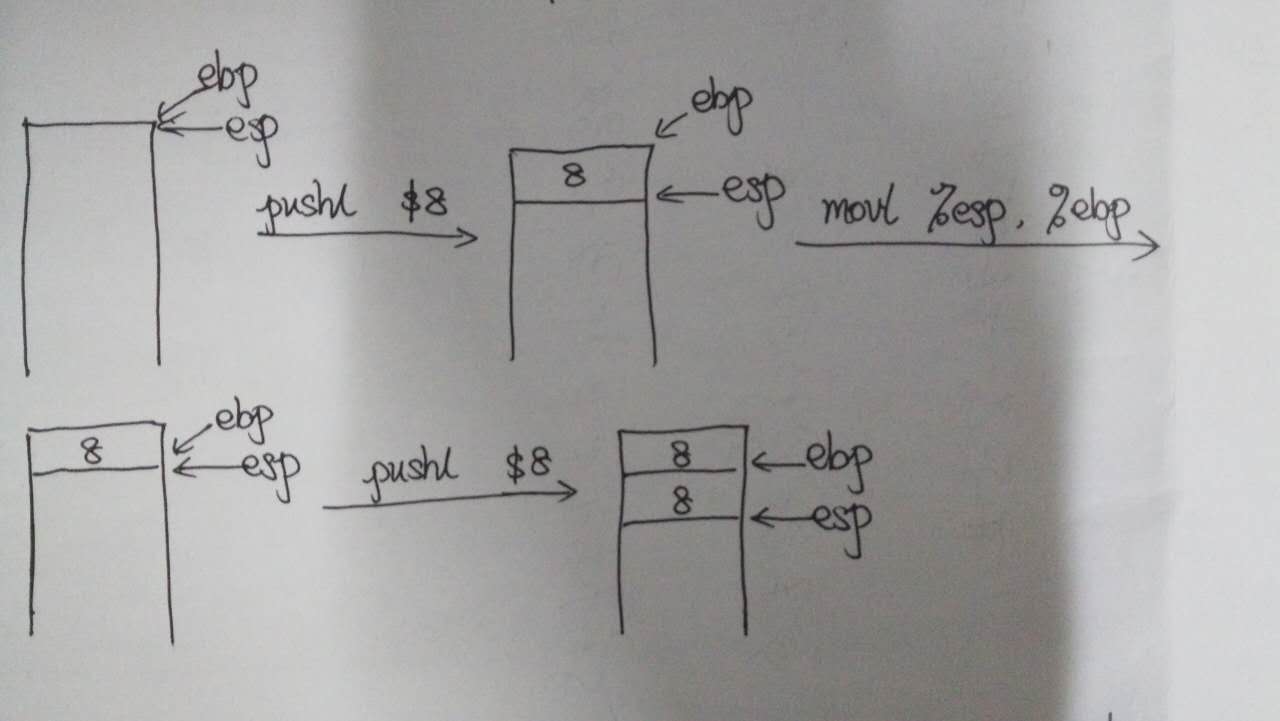 ebp
esp
pushl $8
8
ebp
esp
movl %esp, %ebp
8
ebp
esp
pushl $8
8
ebp
8
esp